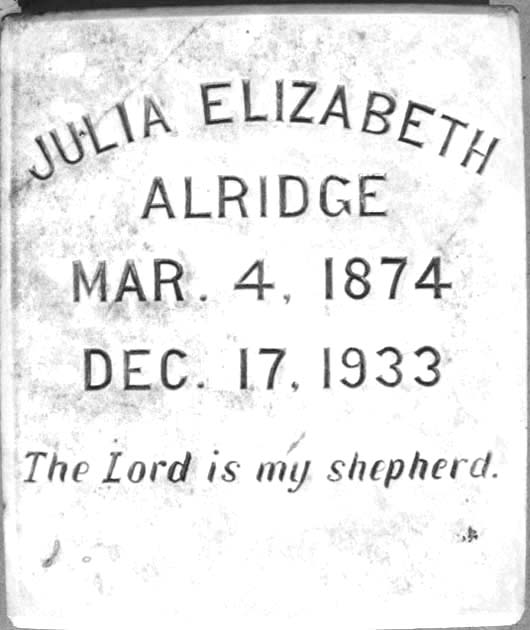 JULIA ELIZABETH
ALRIDGE
MAR. 4, 1874
DEC. 17, 1933
The Lord is my shepherd.